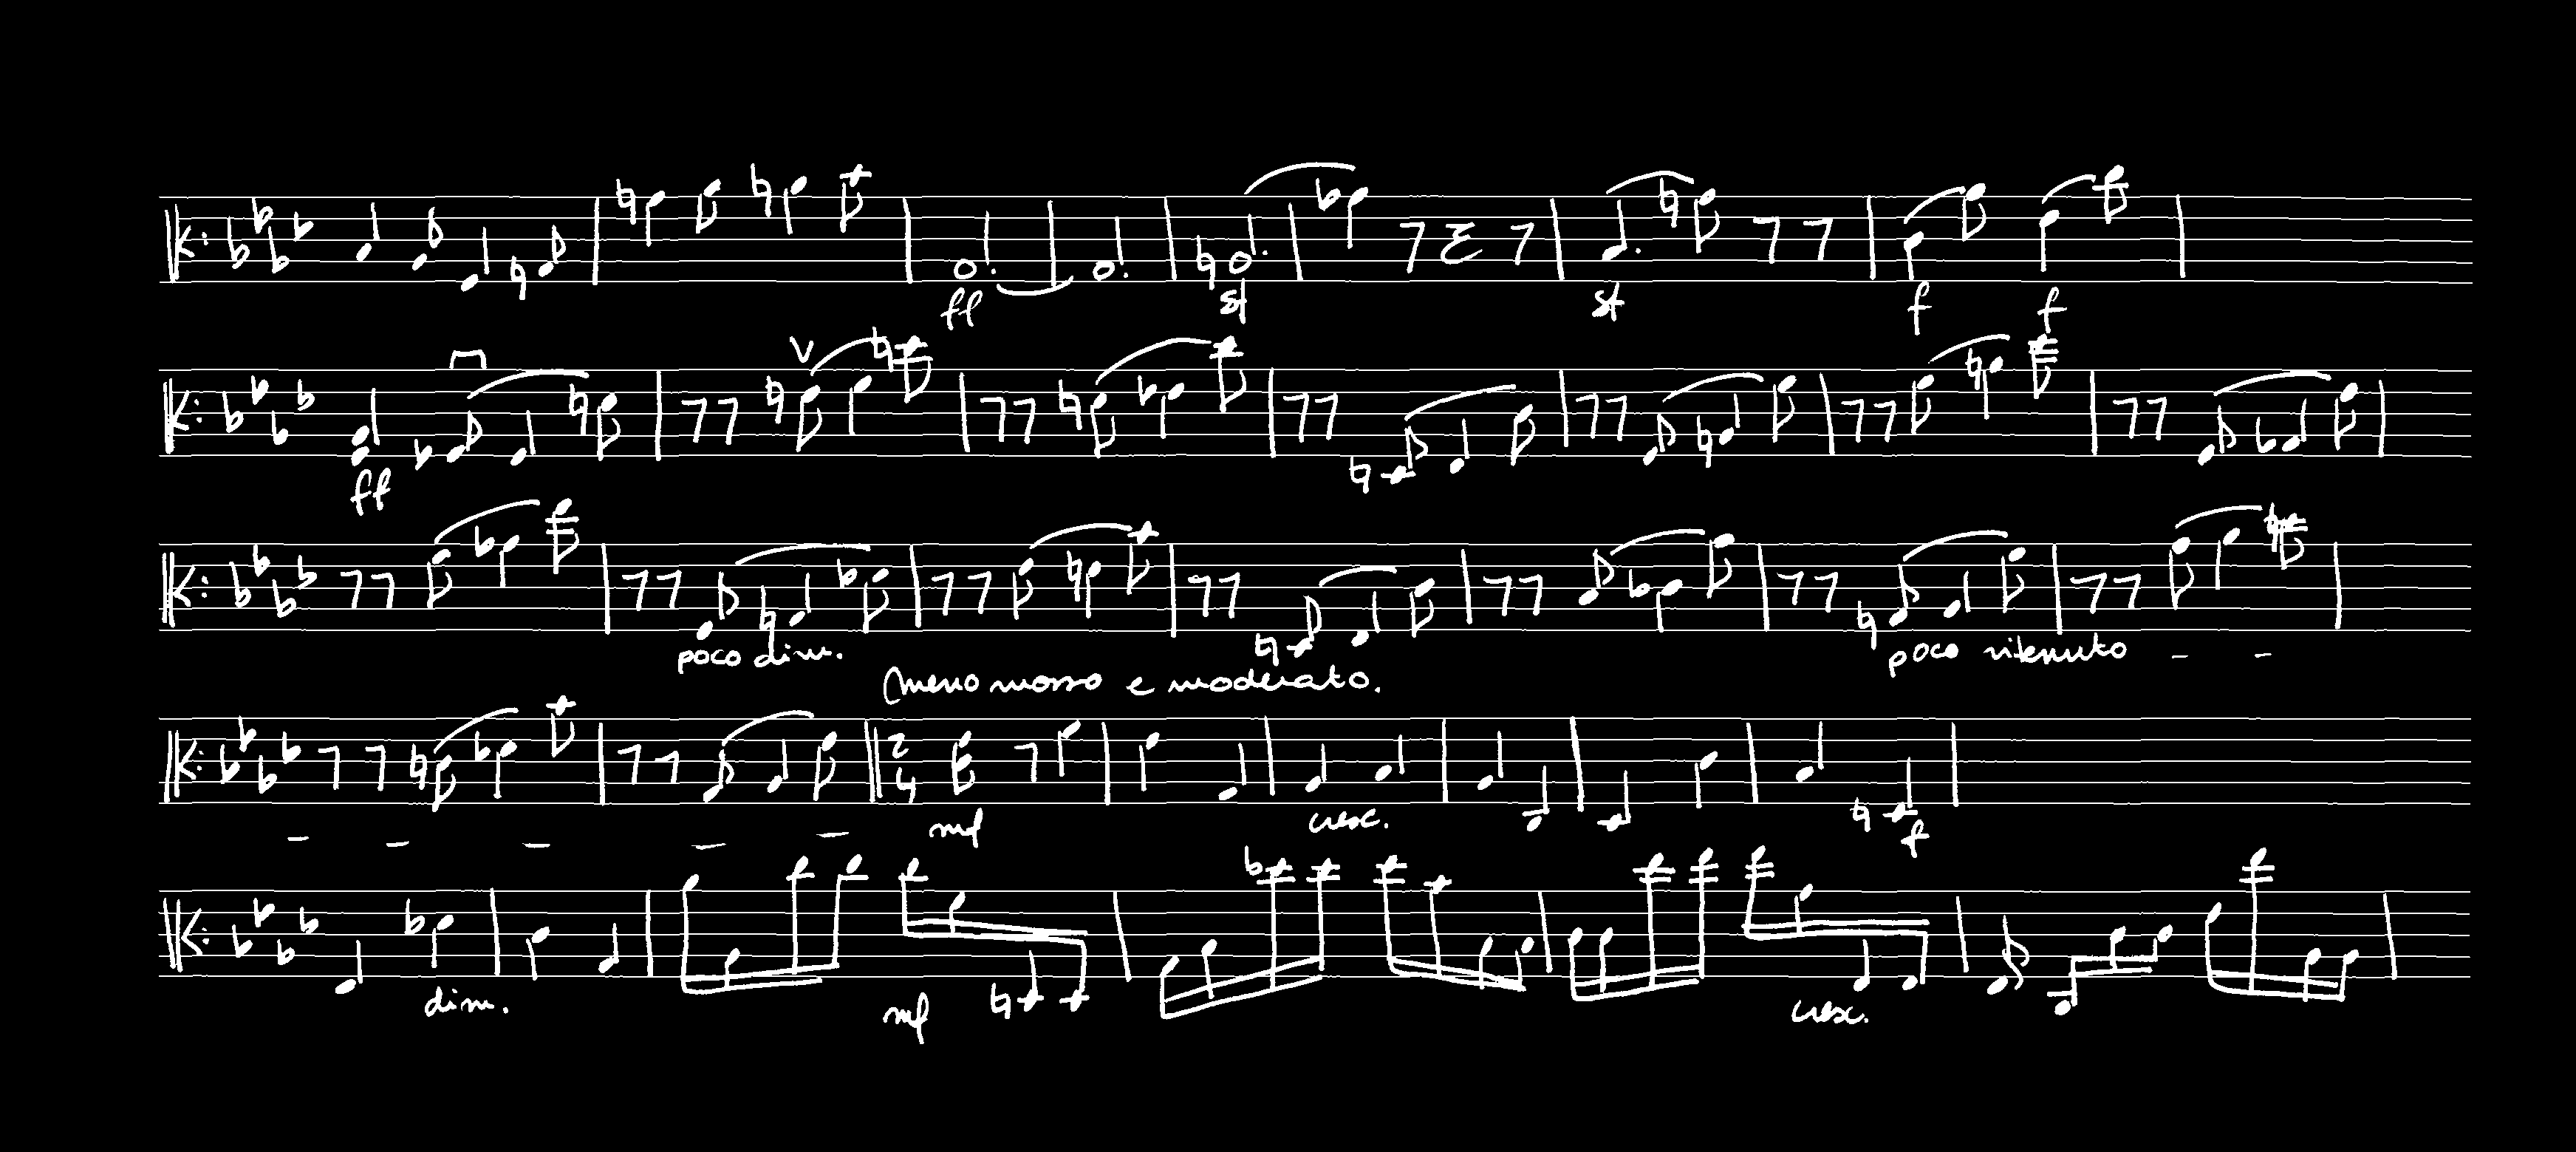 ff sf sf f f
ff
poco dim. poco ritenuto - -
Meno mosso e moderato.
2 4
- - - - - mf cresc. f
dim. mf cresc.